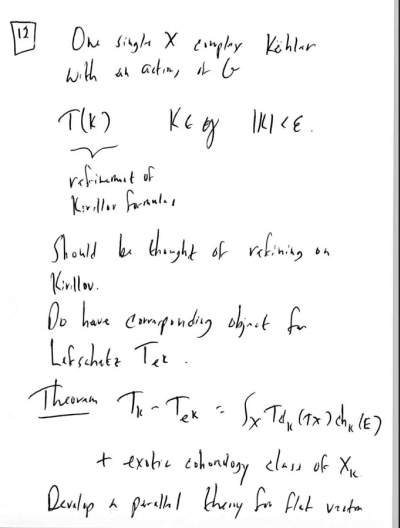 12
One single X complex Kähler
with an action of G
T(K) K ∈ g |K| < ε.
refinement of
Kirillov formulas
Should be thought of refining on
Kirillov.
Do have corresponding object for
Lefschetz T_{eK}.
Theorem T_K - T_{eK} = ∫_X Td_K(TX) ch_K(E)
+ exotic cohomology class of X_K.
Develop a parallel theory for flat vector